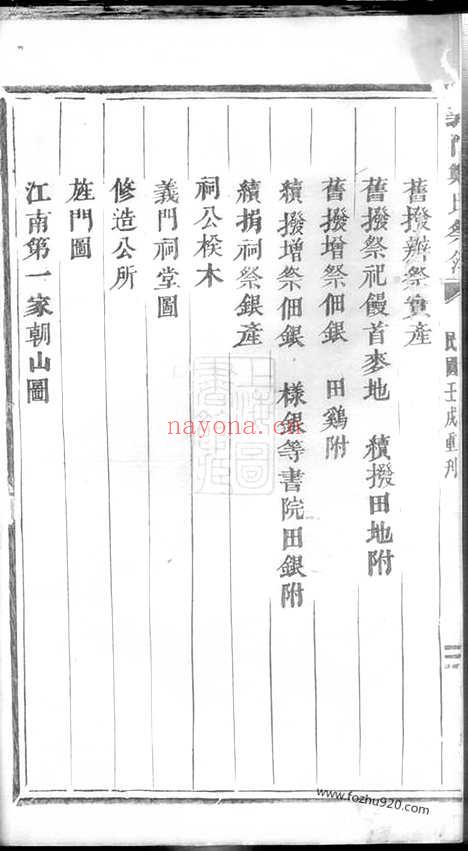 舊撥辦祭實產
舊撥祭祀饅首麥地 續撥田地附
舊撥增祭佃銀 田鷄附
續撥增祭佃銀 樣銀等書院田銀附
續捐祠祭銀產
祠公候木
義門祠堂圖
修造公所
旌門圖
江南第一家朝山圖
民國壬戌重刊
上海圖書館藏
nayona.cn
www.fozhu920.com